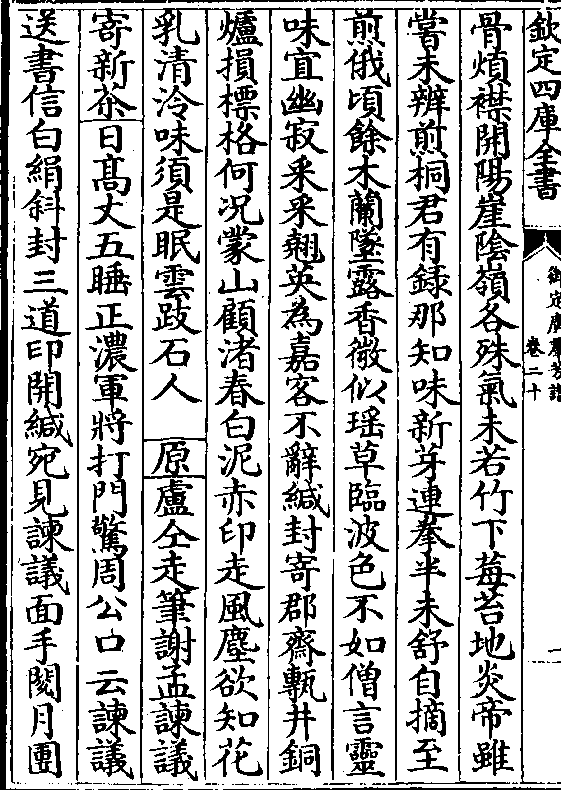 欽定四庫全書
御定廣羣芳譜
卷二十
一
骨煩襟開陽崖陰嶺各殊氣未若竹下莓苔地炎帝雖
嘗未辨煎桐君有録那知味新芽連拳半未舒自摘至
煎俄頃餘木蘭墜露香微似瑶草臨波色不如僧言靈
味宜幽寂采采翹英為嘉客不辭緘封寄郡齋甎井銅
爐損標格何况蒙山顧渚春白泥赤印走風塵欲知花
乳清泠味須是眠雲跂石人 原 盧仝走筆謝孟諫議
寄新茶 日髙丈五睡正濃軍將打門驚周公口云諫議
送書信白絹斜封三道印開緘宛見諫議面手閱月團